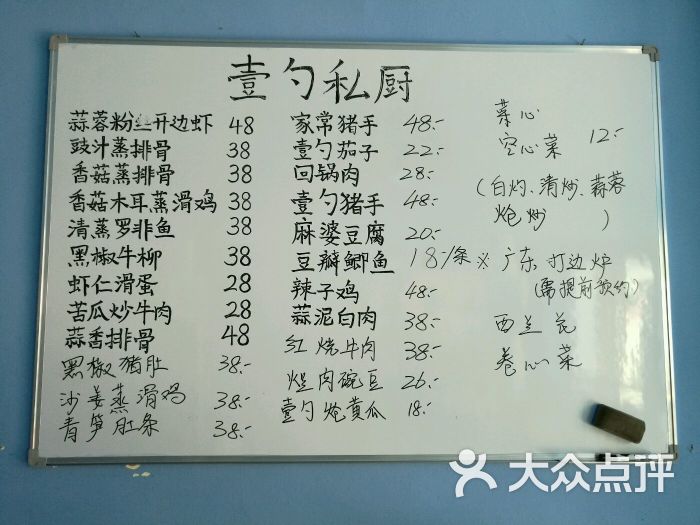 壹勺私厨
蒜蓉粉丝开边虾 48
豉汁蒸排骨 38
香菇蒸排骨 38
香菇木耳蒸滑鸡 38
清蒸罗非鱼 38
黑椒牛柳 38
虾仁滑蛋 28
苦瓜炒牛肉 28
蒜香排骨 48
黑椒猪肚 38.-
沙姜蒸滑鸡 38.-
青笋肚条 38.-
家常猪手 48.-
壹勺茄子 22.-
回锅肉 28.-
壹勺猪手 48.-
麻婆豆腐 20.-
豆瓣鲫鱼 18.-/条
辣子鸡 48.-
蒜泥白肉 38.-
红烧牛肉 38.-
焜肉碗豆 26.-
壹勺炝黄瓜 18.-
菜心
空心菜 12.-
(白灼、清炒、蒜蓉
炝炒)
※广东打边炉
(需提前预约)
西兰花
卷心菜
大众点评